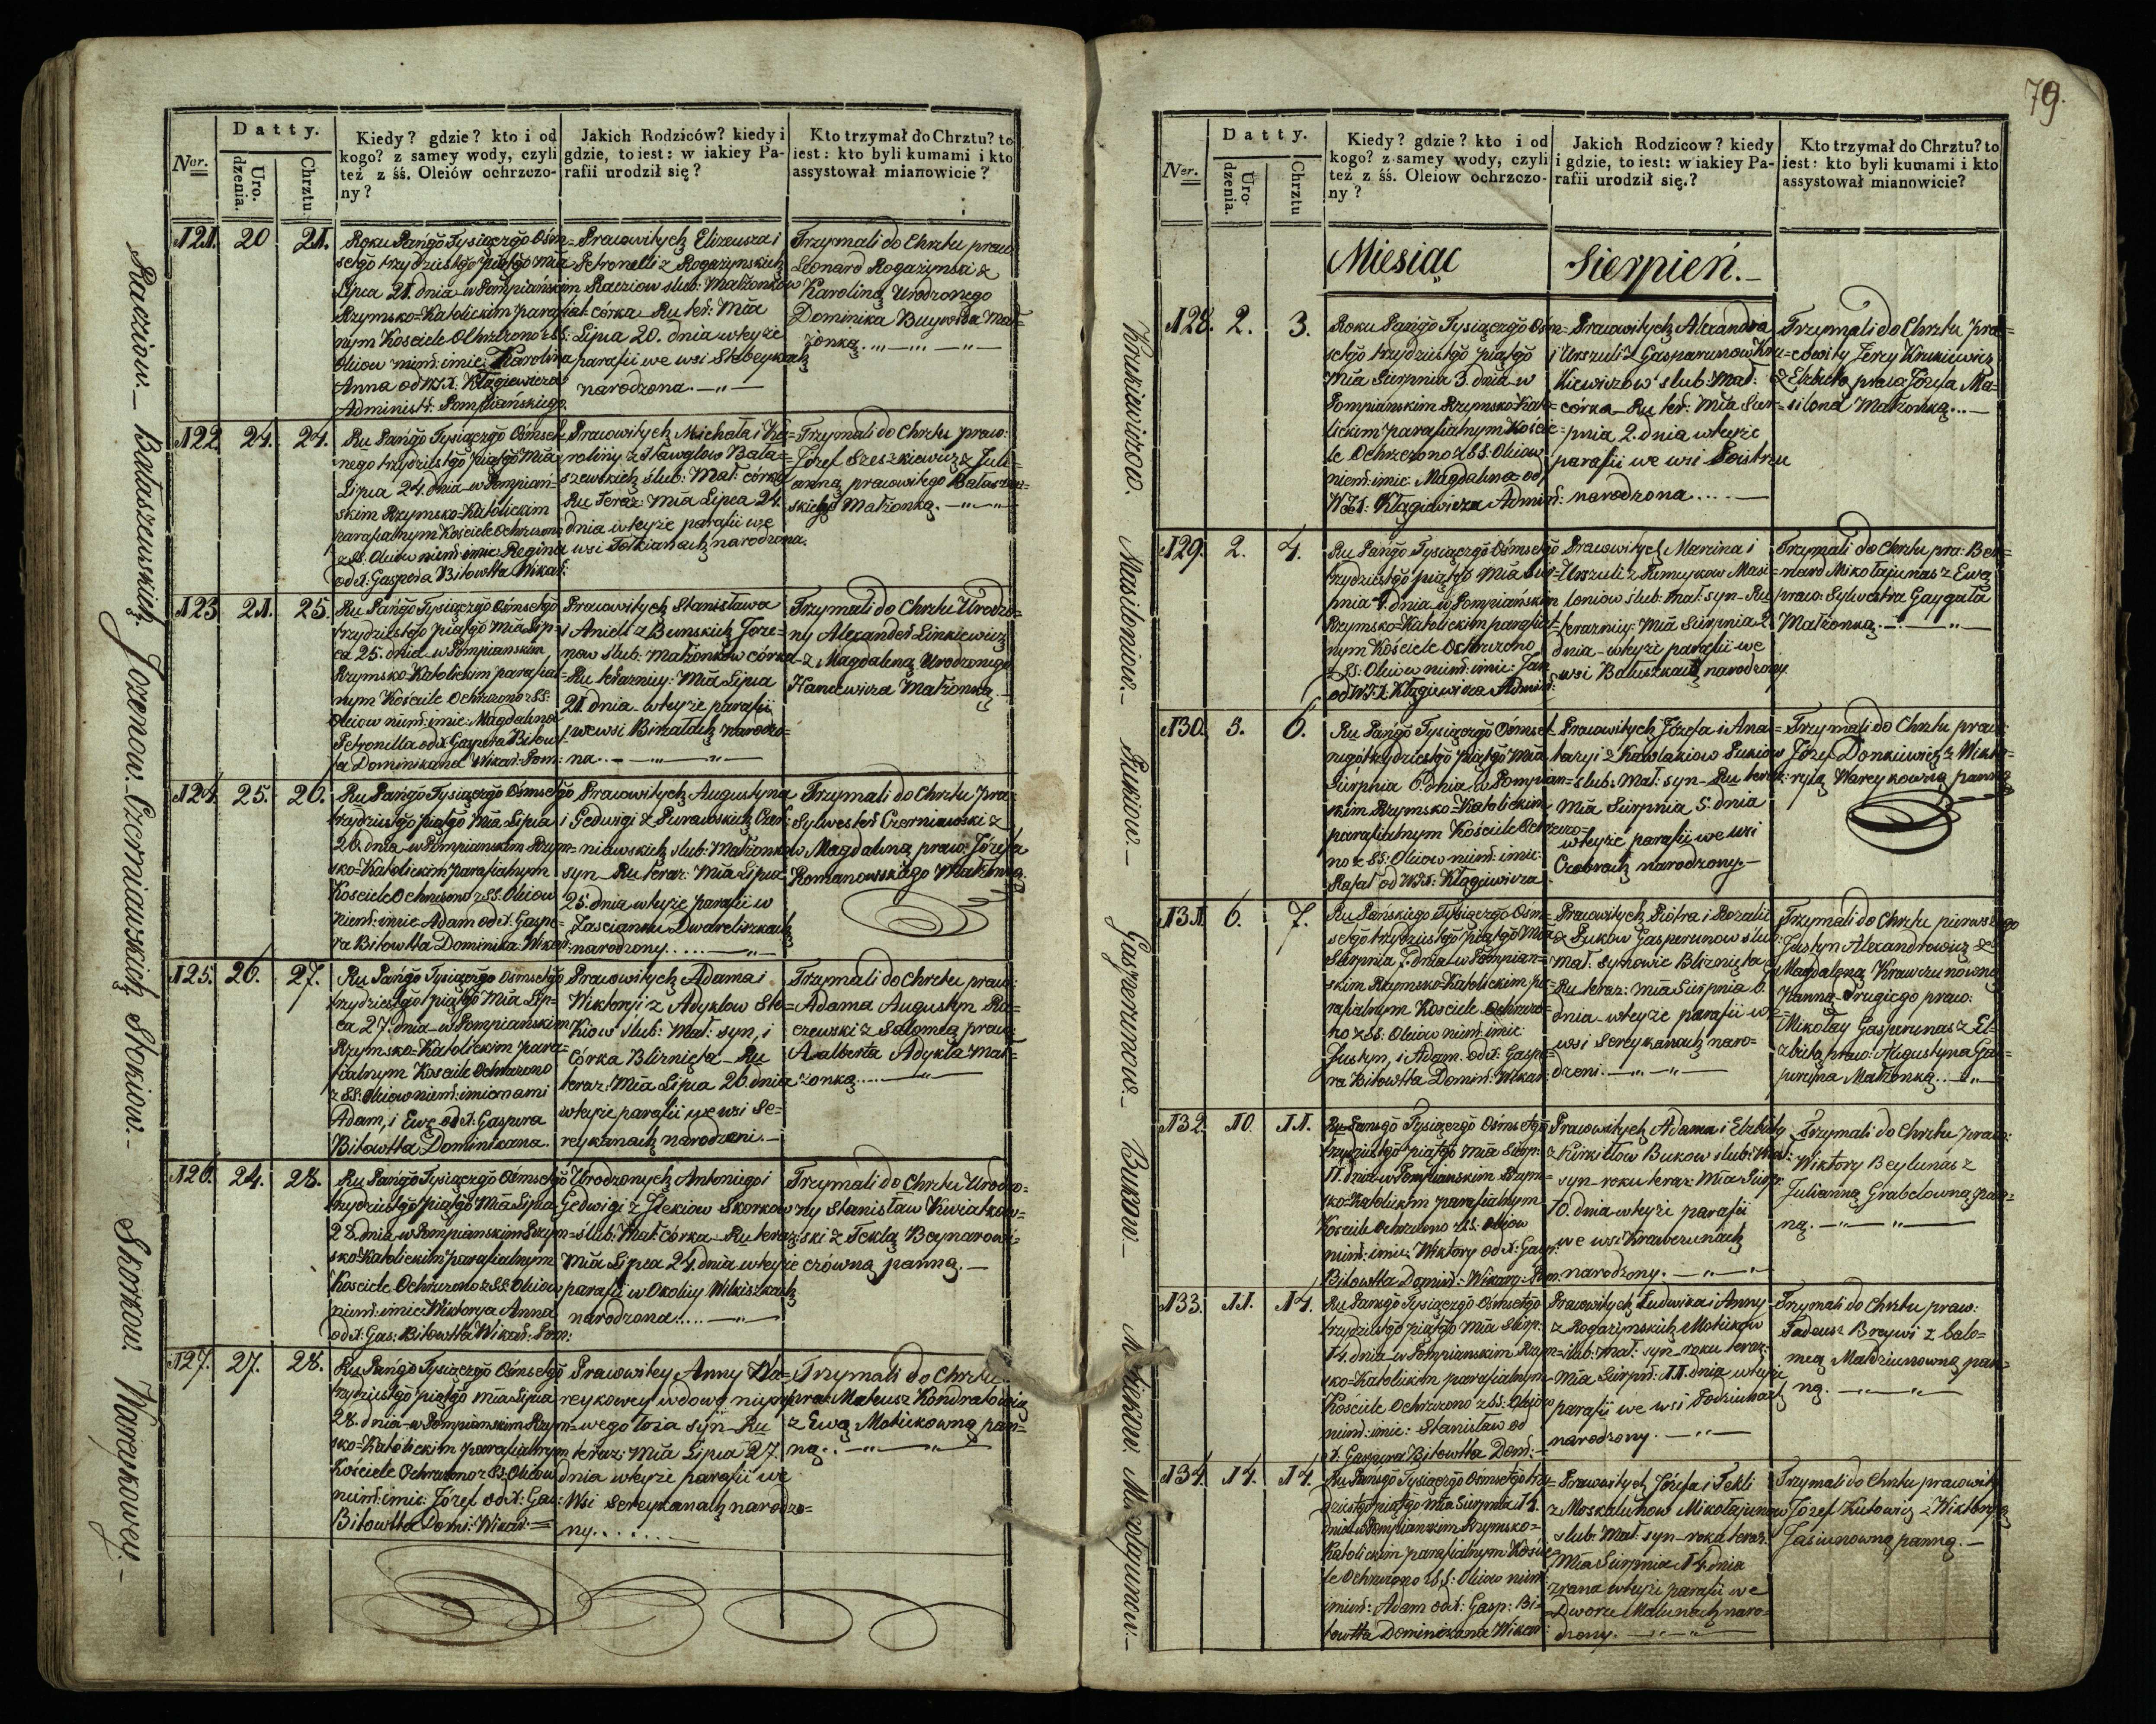 Raiziow. — Bałaszewskich. Jozenow. Czerniauskich Stokiow. — Skorkow. Warejkowey. —
Ner.
Datty.
Uro.
dzenia.
Chrztu
Kiedy? gdzie? kto i od
kogo? z samey wody, czyli
też z śś. Oleiów ochrzczo-
ny?
Jakich Rodziców? kiedy i
gdzie, to iest: w iakiey Pa-
rafii urodził się?
Kto trzymał do Chrztu? to
iest: kto byli kumami i kto
assystował mianowicie?
121. 20 21.
Roku Pańgo Tysiączgo Ośm=
setgo trzydziestgo piątgo Mia
Lipca 21. dnia w Pompiańskim
Rzymsko=Katolickim parafial=
nym Kosciele Ochrzczono z SS:
Oleiow nient: imie: Karolina
Anna od W.X. Kłągiewicza
Administ: Pompiańskiego.
Pracowitych Elizeusza i
Petronelli z Rogażynskich
Raiziow slub: Małżonkow
córka Ru ter: Mia
Lipca 20. dnia w teyże
parafii we wsi Stebeykach
narodzona. — „ —
Trzymali do Chrztu praw:
Leonard Rogażynski z
Karoliną Urodzonego
Dominika Buywida Mał=
żonką. „ — „ — „ —
122. 24. 24.
Ru Pańgo Tysiączgo Ośmset=
nego trzydziestgo piątgo Mia
Lipca 24. dnia w Pompiań=
skim Rzymsko=Katolickim
parafialnym Kościele Ochrzczono
z SS. Oleiow nient: imie Regina
od X: Gaspera Bitowtta Wikar:
Pracowitych Michała i Ka=
roliny z Hawgłow Bała=
szewskich ślub: Mał: córka
Ru Teraz: Mia Lipca 24.
dnia w teyże parafii we
wsi Totkianach narodzona.
Trzymali do Chrztu praw:
Jozef Szeszkiewicz z Juli=
anną pracowitego Bałaszew=
skiego Małżonką. — „ — „ —
123. 21. 25.
Ru Pańgo Tysiączgo Ośmsetgo
trzydziestgo piątgo Mia Lip=
ca 25. dnia w Pompianskim
Rzymsko=Katolickim parafial=
nym Kościele Ochrzczono z SS:
Oleiow nient: imie: Magdalena
Petronilla od X. Gaspera Bitowt=
ta Dominikana Wikar: Pom:
Pracowitych Stanisława
i Anieli z Bunskich Joze=
now slub: Małżonkow córka
Ru terazniey: Mia Lipca
21. dnia w teyże parafii
we wsi Birżałdach narodzo=
na. — „ — „ —
Trzymali do Chrztu Urodzo=
ny Alexander Linkiewicz
z Magdaleną Urodzonego
Hancewicza Małżonką. —
124. 25. 26.
Ru Pańgo Tysiączgo Ośmsetgo
trzydziestgo piątgo Mia Lipca
26. dnia w Pompianskim Rzym=
sko=Katolickim parafialnym
Kościele Ochrzczono z SS. Oleiow
nient: imie Adam od X. Gaspe=
ra Bitowtta Dominika: Wikar:
Pracowitych Augustyna
i Jedwigi z Purawskich Czer=
niawskich slub: Małżonkow
syn Ru teraz: Mia Lipca
25. dnia w teyże parafii w
Zascianku Dwareliszkach
narodzony. . . . . — „ —
Trzymali do Chrztu pra=
Sylwester Czerniawski z
Magdaleną praw: Józefa
Romanowskiego Małżonką.
125. 26. 27.
Ru Pańgo Tysiączgo Osmsetgo
trzydziestgo piątgo Mia Lip=
ca 27. dnia w Pompianskim
Rzymsko=Katolickim para=
fialnym Kosciele Ochrzczono
z SS: Oleiow nient: imionami
Adam, i Ewę od X. Gaspera
Bitowtta Dominikana.
Pracowitych Adama i
Wiktoryi z Adyklow Sto=
kiow slub: Mał: syn, i
córka Blizniçta Ru
teraz: Mia Lipca 26. dnia
w teyże parafii we wsi Se=
reykanach narodzeni. —
Trzymali do Chrztu praw:
Adama Augustyn Ra=
czewski z Salomeą praw:
Aalberta Adykla Mał=
żonką. . . . — „ —
126. 24. 28.
Ru Pańgo Tysiączgo Ośmsetgo
trzydziestgo piątgo Mia Lipca
28. dnia w Pompianskim Rzym=
sko=Katolickim parafialnym
Kościele Ochrzczono z SS. Oleiow
nient: imie: Wiktorya Anna
od X: Gas: Bitowtta Wikar: Pom:
Urodzonych Antoniego i
Jedwigi z Ilekiow Skorkow
ślub: Mał: córka Ru teraz:
Mia Lipca 24. dnia w teyże
parafii w Okolicy Wilkiszkach
narodzona. . . . . — „ —
Trzymali do Chrztu Urodzo=
ny Stanisław Kwiatkow=
ski z Teklą Beynarowi=
czówną panną. —
127. 27. 28.
Ru Pańgo Tysiączgo Ośmsetgo
trzydziestgo piątgo Mia Lipca
28. dnia w Pompianskim Rzym=
sko=Katolickim parafialnym
Kościele Ochrzczono z SS: Oleiow
nient: imie: Józef od X: Gas:
Bitowtta Domi: Wikar: =
Pracowitey Anny Wa=
reykowey wdowy niepra=
wego łoża syn Ru
teraz: Mia Lipca 27.
dnia w teyże parafii we
Wsi Sereykanach narodzo=
ny. . . . . . .
Trzymali do Chrztu
pra: Mateusz Kondratowicz
z Ewą Motiekowną pan=
ną. . — „ — „ —
79.
Krukiewiczow. Masiloniow. — Pukiow. — Gasperunow. — Bukow. — Motiekow. Mikołajunow. —
Ner.
Datty.
Uro-
dzenia.
Chrztu
Kiedy? gdzie? kto i od
kogo? z samey wody, czyli
też z śś. Oleiow ochrzczo-
ny?
Jakich Rodziców? kiedy
i gdzie, to iest: w iakiey Pa-
rafii urodził się.?
Kto trzymał do Chrztu? to
iest: kto byli kumami i kto
assystował mianowicie?
Miesiąc Sierpień. —
128. 2. 3.
Roku Pańgo Tysiączgo Ośm=
setgo trzydziestgo piątgo
Mia Sierpnia 3. dnia w
Pompianskim Rzymsko=Kato=
lickim parafialnym Koście=
le Ochrzczono z SS. Oleiow
nient: imie: Magdalena od
W.X: Kłągiewicza Admin:
Pracowitych Alexandra
i Urszuli z Gasparunow Kru=
kiewiczow slub: Mał:
córka Ru ter: Mia Sier=
pnia 2. dnia w teyże
parafii we wsi Soistrzu
narodzona. . . . . —
Trzymali do Chrztu pra=
cowity Jerzy Krukiewicz
z Elżbietą praca Józefa Ma=
silona Małżonką. . . —
129. 2. 4.
Ru Pańgo Tysiączgo Ośmsetgo
trzydziestgo piątgo Mia Sier=
pnia 4. dnia w Pompiańskim
Rzymsko=Katolickim parafial=
nym Kościele Ochrzczono
z SS: Oleiow nient: imie: Jan
od W.X. Kłągiewicza Admin:
Pracowitych Marcina i
Urszuli z Rimuykow Masi=
loniow ślub: Mał: syn Ru
terazniey: Mia Sierpnia 2.
dnia w teyże parafii we
wsi Bałuszkach narodzony.
Trzymali do Chrztu pra: Ber=
nard Mikołajunas z Ewą
praw: Sylwestra Gaygała
Małżonką. — „ — „ —
130. 5. 6.
Ru Pańgo Tysiączgo Ośmset=
nego trzydziestgo piątgo Mia
Sierpnia 6. dnia w Pompian=
skim Rzymsko=Katolickim
parafialnym Kościele Ochrzczo=
no z SS: Oleiow nient: imie:
Rafał od W.X: Kłągiewicza
Pracowitych Józefa i Ana=
stazyi z Karolaziow Pukiow
slub: Mał: syn Ru teraz:
Mia Sierpnia 5. dnia
w teyże parafii we wsi
Czobrach narodzony. —
Trzymali do Chrztu praw:
Józef Donkiewicz z Wikto=
ryią Wareykowną panną
131. 6. 7.
Ru Pańskiego Tysiączgo Ośm=
setgo trzydziestgo piątgo Mia
Sierpnia 7. dnia w Pompian=
skim Rzymsko=Katolickim pa=
rafialnym Kosciele Ochrzczo=
no z SS. Oleiow nient: imie:
Justyn, i Adam od X: Gaspe=
ra Bitowtta Domin: Wikar:
Pracowitych Piotra i Rozalii
z Pukow Gasperunow ślub:
Mał: synowie Bliznięta
Ru teraz: Mia Sierpnia 6.
dnia w teyże parafii we
wsi Sereykanach naro=
dzeni. — „ — „ —
Trzymali do Chrztu pierwszego
Justyn Alexandrowicz z
Magdaleną Krawczunowną
panną. Drugiego praw:
Mikołay Gasperunas z El=
żbietą praw: Augustyna Gas=
peruna Małżonką. . — „ —
132. 10. 11.
Ru Pańsgo Tysiączgo Ośmsetgo
trzydziestgo piątgo Mia Sierp:
11. dnia w Pompianskim Rzym=
sko=Katolickim parafialnym
Kościele Ochrzczono z SS: Oleiow
nient: imie: Wiktory od X: Gasp:
Bitowtta Domin: Wikarg: Pom:
Pracowitych Adama i Elzbiety
z Kirkiłłow Bukow slub: Mał:
syn roku teraz: Mia Sierp:
10. dnia w teyże parafii
we wsi Krawczunach
narodzony. — „ — „ —
Trzymali do Chrztu praw:
Wiktory Beylunas z
Julianną Grabelowną pan=
ną. — „ — „ —
133. 11. 14.
Ru Pańsgo Tysiączgo Ośmsetgo
trzydziestgo piątgo Mia Sierp:
14. dnia w Pompianskim Rzym=
sko=Katolickim parafialnym
Kościele Ochrzczono z SS: Oleiow
nient: imie: Stanisław od
X. Gaspera Bitowtta Dom: =
Pracowitych Ludwika i Anny
z Rogażynskich Motiekow
slub: Mał: syn roku teraz:
Mia Sierpn: 11. dnia w teyże
parafii we wsi Podziunach
narodzony. — „ —
Trzymali do Chrztu praw:
Tadeusz Breywi z Salo=
meą Matdziunowną pan=
ną. — „ — „ —
134. 14. 14.
Ru Pańsgo Tysiączgo Ośmsetgo trzy=
dziestgo piątgo Mia Sierpnia 14.
dnia w Pompianskim Rzymsko=
Katolickim parafialnym Koście
le Ochrzczono z SS: Oleiow nient:
imien: Adam od X: Gasp: Bi=
towtta Dominikana Wikar:
Pracowitych Józefa i Tekli
z Moskalunow Mikołajunow
slub: Mał: syn roku teraz:
Mia Sierpnia 14. dnia
zrana w teyże parafii we
Dworu Malunach naro=
dzony. — „ — „ —
Trzymali do Chrztu pracowity
Jozef Kutowicz z Wiktoryią
Jasiunowną panną. —